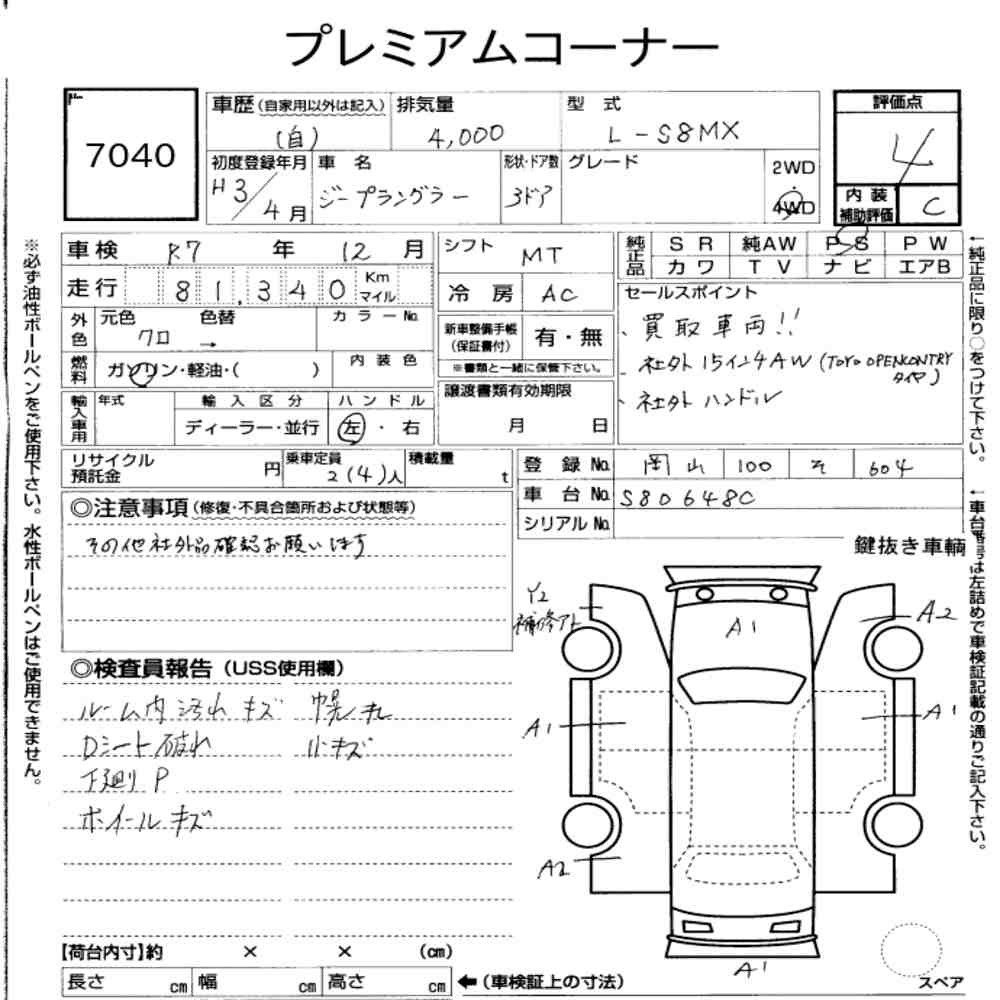 プレミアムコーナー
7040
車歴(自家用以外は記入)
(自)
排気量
4,000
型式
L-S8MX
評価点
4
初度登録年月
H3/4月
車名
ジープラングラー
形状・ドア数
3ドア
グレード
2WD
4WD
内装
補助評価
C
車検 R7年 12月
走行 81,340 Km
マイル
外色
元色
クロ
色替
→
カラーNo.
燃料
ガソリン・軽油・( )
内装色
輸入車用
年式
輸入区分
ディーラー・並行
ハンドル
左・右
シフト MT
冷房 AC
新車整備手帳
(保証書付)
有・無
※書類と一緒に保管下さい。
譲渡書類有効期限
月 日
純正品
SR 純AW PS PW
カワ TV ナビ エアB
セールスポイント
、買取車両!!
・社外15インチAW(TOYO OPENCONTRY
タイヤ)
・社外ハンドル
リサイクル
預託金
円
乗車定員
2(4)人
積載量
t
登録No. 岡山 100 そ 604
車台No. S80648C
シリアルNo.
◎注意事項(修復・不具合箇所および状態等)
その他社外品確認お願いします
鍵抜き車輌
◎検査員報告(USS使用欄)
ルーム内汚れキズ
Dシート破れ
下廻りP
ホイールキズ
幌ヤレ
小キズ
Y2
補修アト
A1
A2
A1
A1
A2
A1
スペア
【荷台内寸】約 × × (cm)
長さ cm 幅 cm 高さ cm
←(車検証上の寸法)
※必ず油性ボールペンをご使用下さい。水性ボールペンはご使用できません。
←純正品に限り○をつけて下さい。
←車台番号は左詰めで車検証記載の通りご記入下さい。